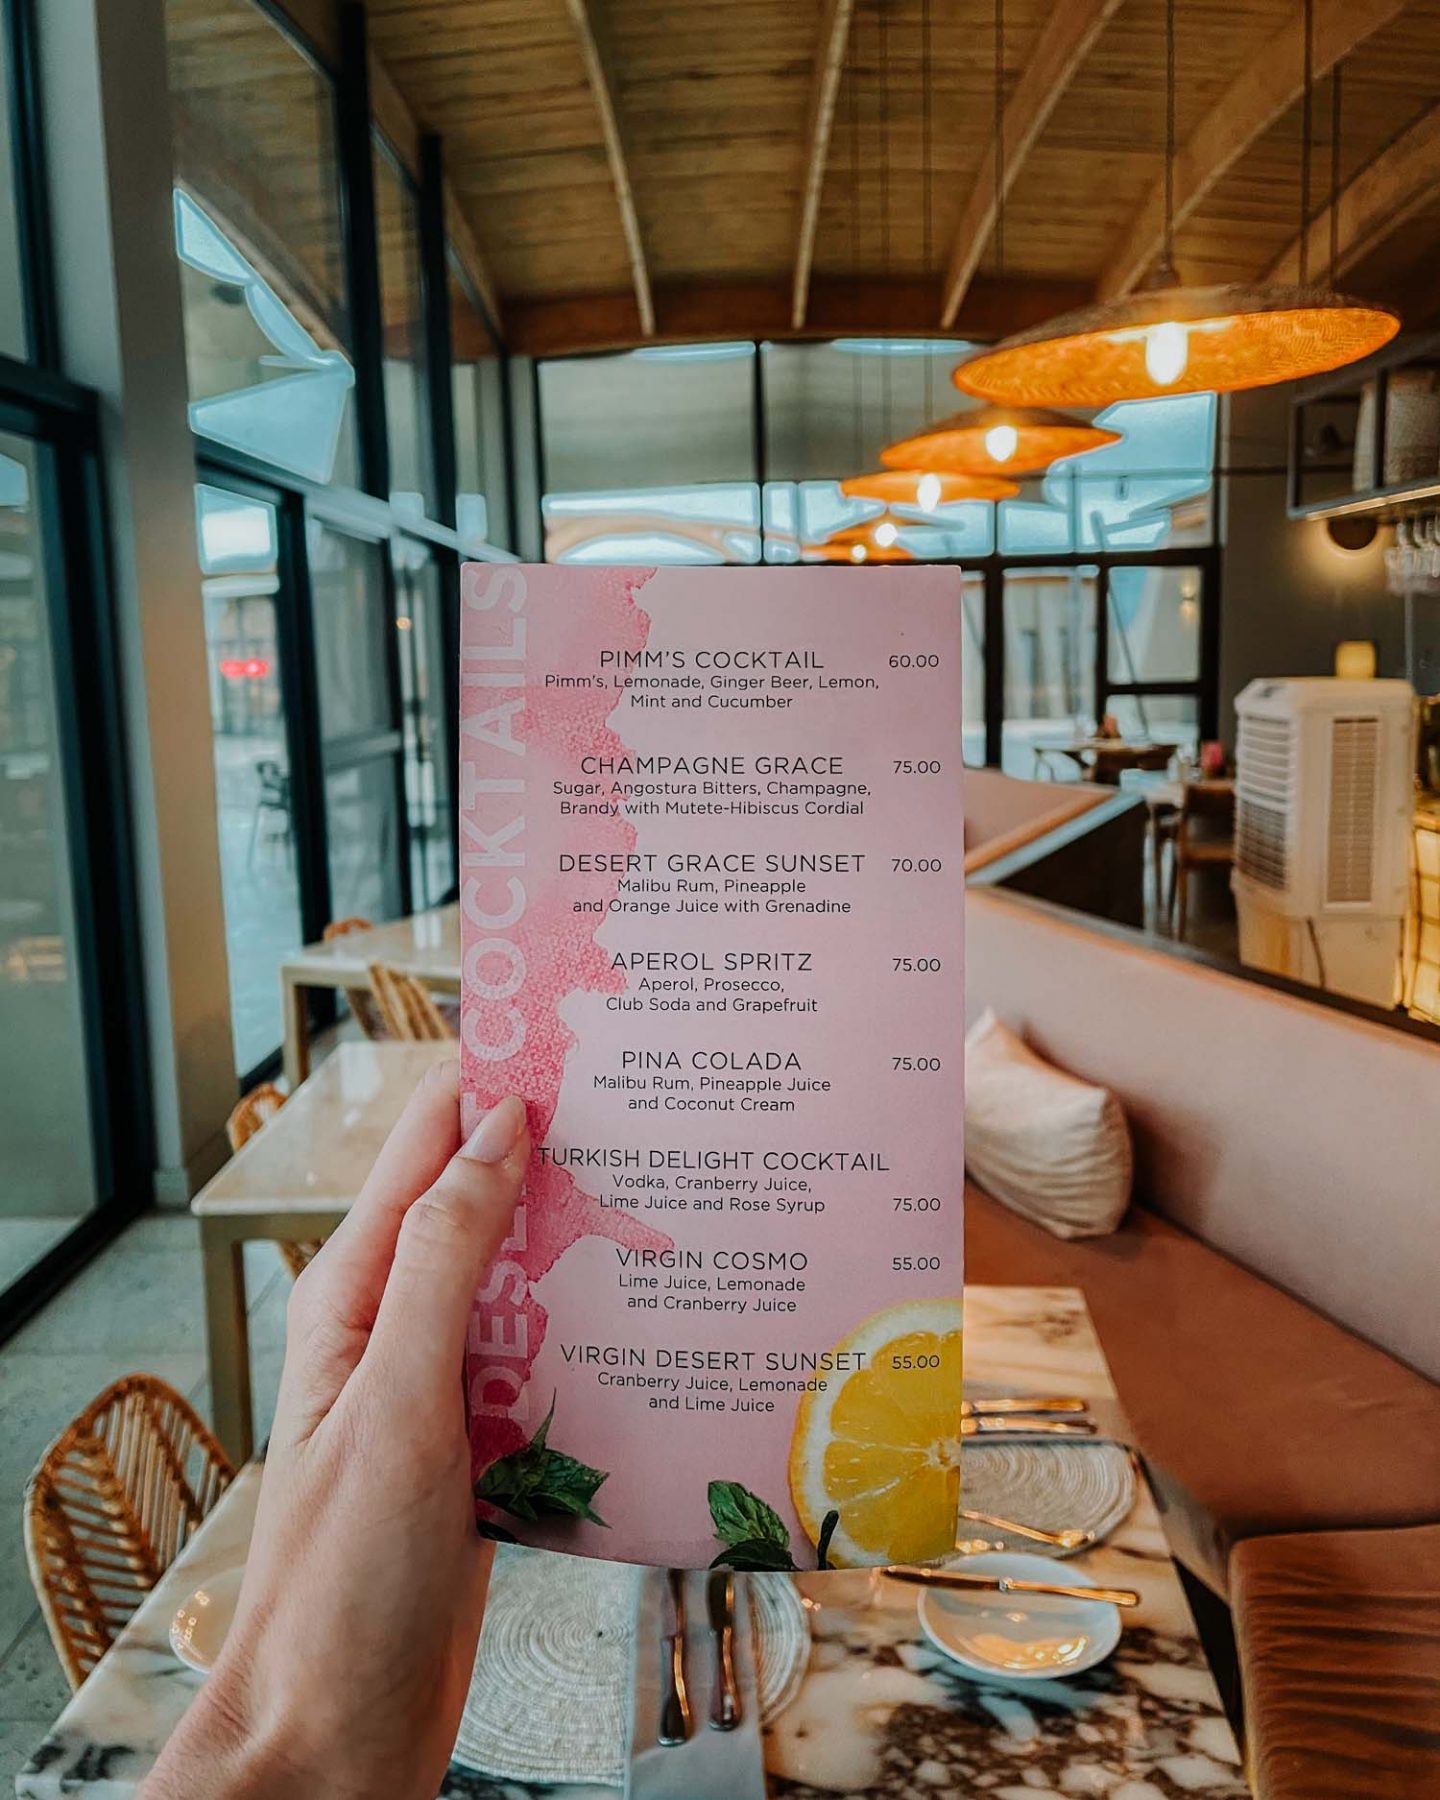 DESERT COCKTAILS
PIMM'S COCKTAIL 60.00
Pimm's, Lemonade, Ginger Beer, Lemon,
Mint and Cucumber
CHAMPAGNE GRACE 75.00
Sugar, Angostura Bitters, Champagne,
Brandy with Mutete-Hibiscus Cordial
DESERT GRACE SUNSET 70.00
Malibu Rum, Pineapple
and Orange Juice with Grenadine
APEROL SPRITZ 75.00
Aperol, Prosecco,
Club Soda and Grapefruit
PINA COLADA 75.00
Malibu Rum, Pineapple Juice
and Coconut Cream
TURKISH DELIGHT COCKTAIL
Vodka, Cranberry Juice,
Lime Juice and Rose Syrup 75.00
VIRGIN COSMO 55.00
Lime Juice, Lemonade
and Cranberry Juice
VIRGIN DESERT SUNSET 55.00
Cranberry Juice, Lemonade
and Lime Juice